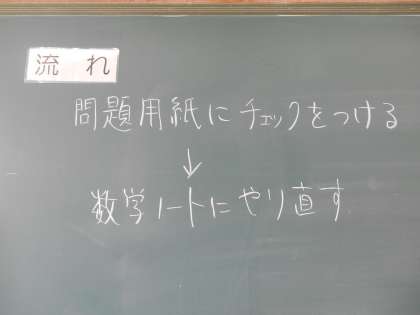 流れ
問題用紙にチェックをつける
↓
数学ノートにやり直す